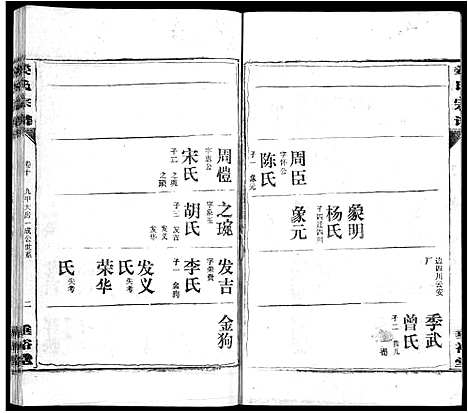 周臣
字怀公
陈氏
子一 象元
象元
象明
杨氏
子四迁四川
边四川云安
厂
季武
曾氏
子二
周愷
字惠公
宋氏
子二 之琬
之琐
之琬
胡氏
子三 发吉
发义
发华
发吉
字荣贵
李氏
子一 金狗
金狗
发义
氏失考
荣华
氏失考
卷十
九甲大房一成公世系
二
垂裕堂